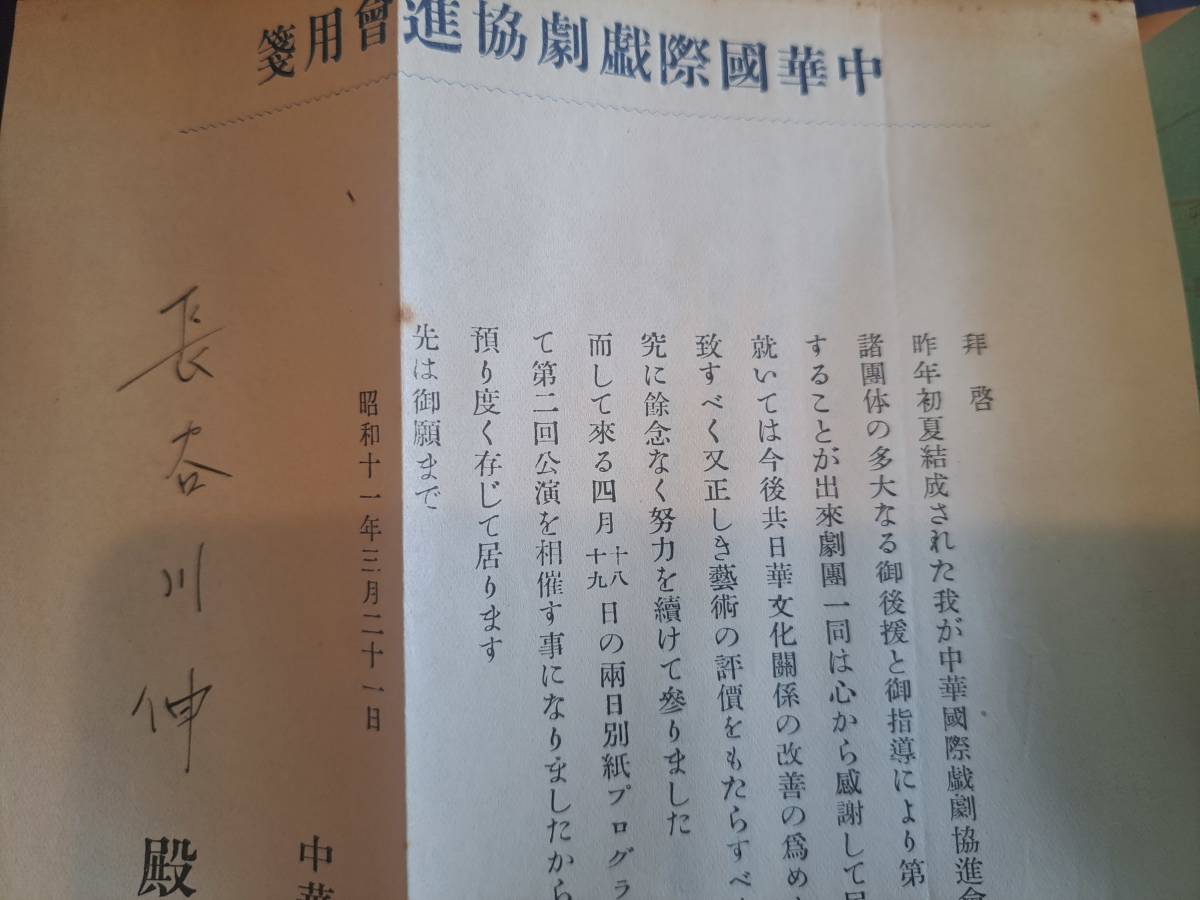 中華國際戯劇協進會用箋
拜啓
昨年初夏結成された我が中華國際戯劇協進會
諸團体の多大なる御後援と御指導により第
することが出來劇團一同は心から感謝して居
就いては今後共日華文化關係の改善の爲め
致すべく又正しき藝術の評價をもたらすべ
究に餘念なく努力を續けて參りました
而して來る四月十八十九日の兩日別紙プログラ
て第二回公演を相催す事になりましたから
預り度く存じて居ります
先は御願まで
昭和十一年三月二十一日
中華
長谷川伸殿